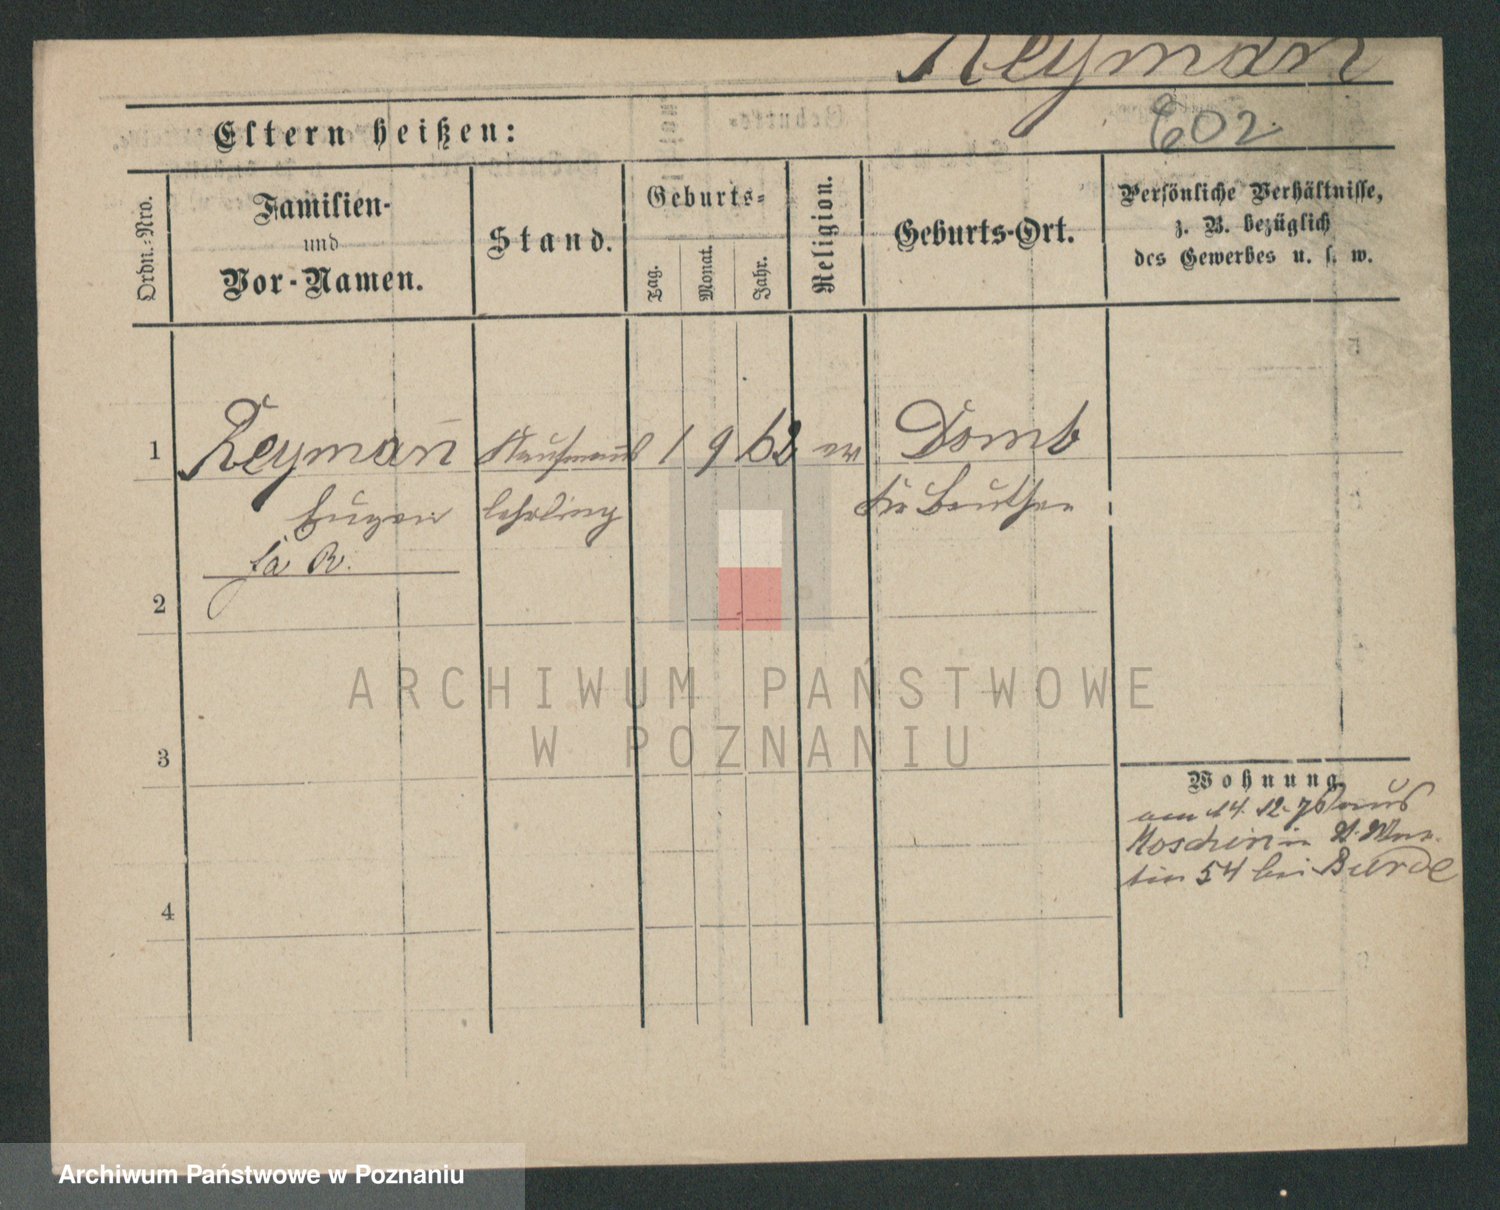 Reymañ
602
Eltern heißen:
Ordn.-Nro.
Familien-
und
Vor-Namen.
Stand.
Geburts-
Tag.
Monat.
Jahr.
Religion.
Geburts-Ort.
Persönliche Verhältnisse,
z. B. bezüglich
des Gewerbes u. s. w.
1 Reymañ Kaufmanns 1 9 62 ev Domb
Eugen lehrling Kr Beuthen
2
3
4
Wohnung.
am 14. 12. 78 aus
Moschin in St. Mar-
tin 54 bei Burde
ARCHIWUM PAŃSTWOWE
W POZNANIU
Archiwum Państwowe w Poznaniu